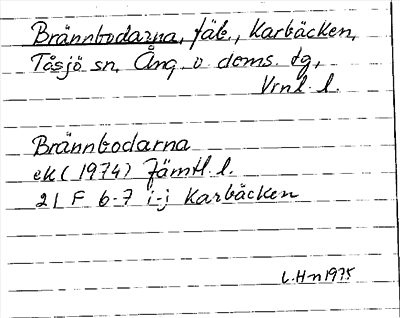 Brännbodarna, fäb., Karbäcken,
Tåsjö sn, Ång. o. doms. tg,
Vrnl. l.
Brännbodarna
ek (1974) Jämtl. l.
21 F 6-7 i-j Karbäcken
L.Hn 1975